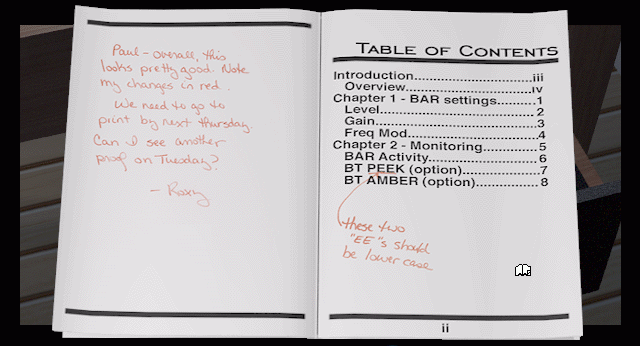 Paul - overall, this
looks pretty good. Note
my changes in red.
We need to go to
print by next thursday.
Can I see another
proof on Tuesday?
- Roxy
TABLE OF CONTENTS
Introduction..............................iii
Overview................................iv
Chapter 1 - BAR settings.........1
Level.......................................2
Gain........................................3
Freq Mod................................4
Chapter 2 - Monitoring............5
BAR Activity...........................6
BT PEEK (option)...................7
BT AMBER (option)................8
these two
"EE"s should
be lower case
ii